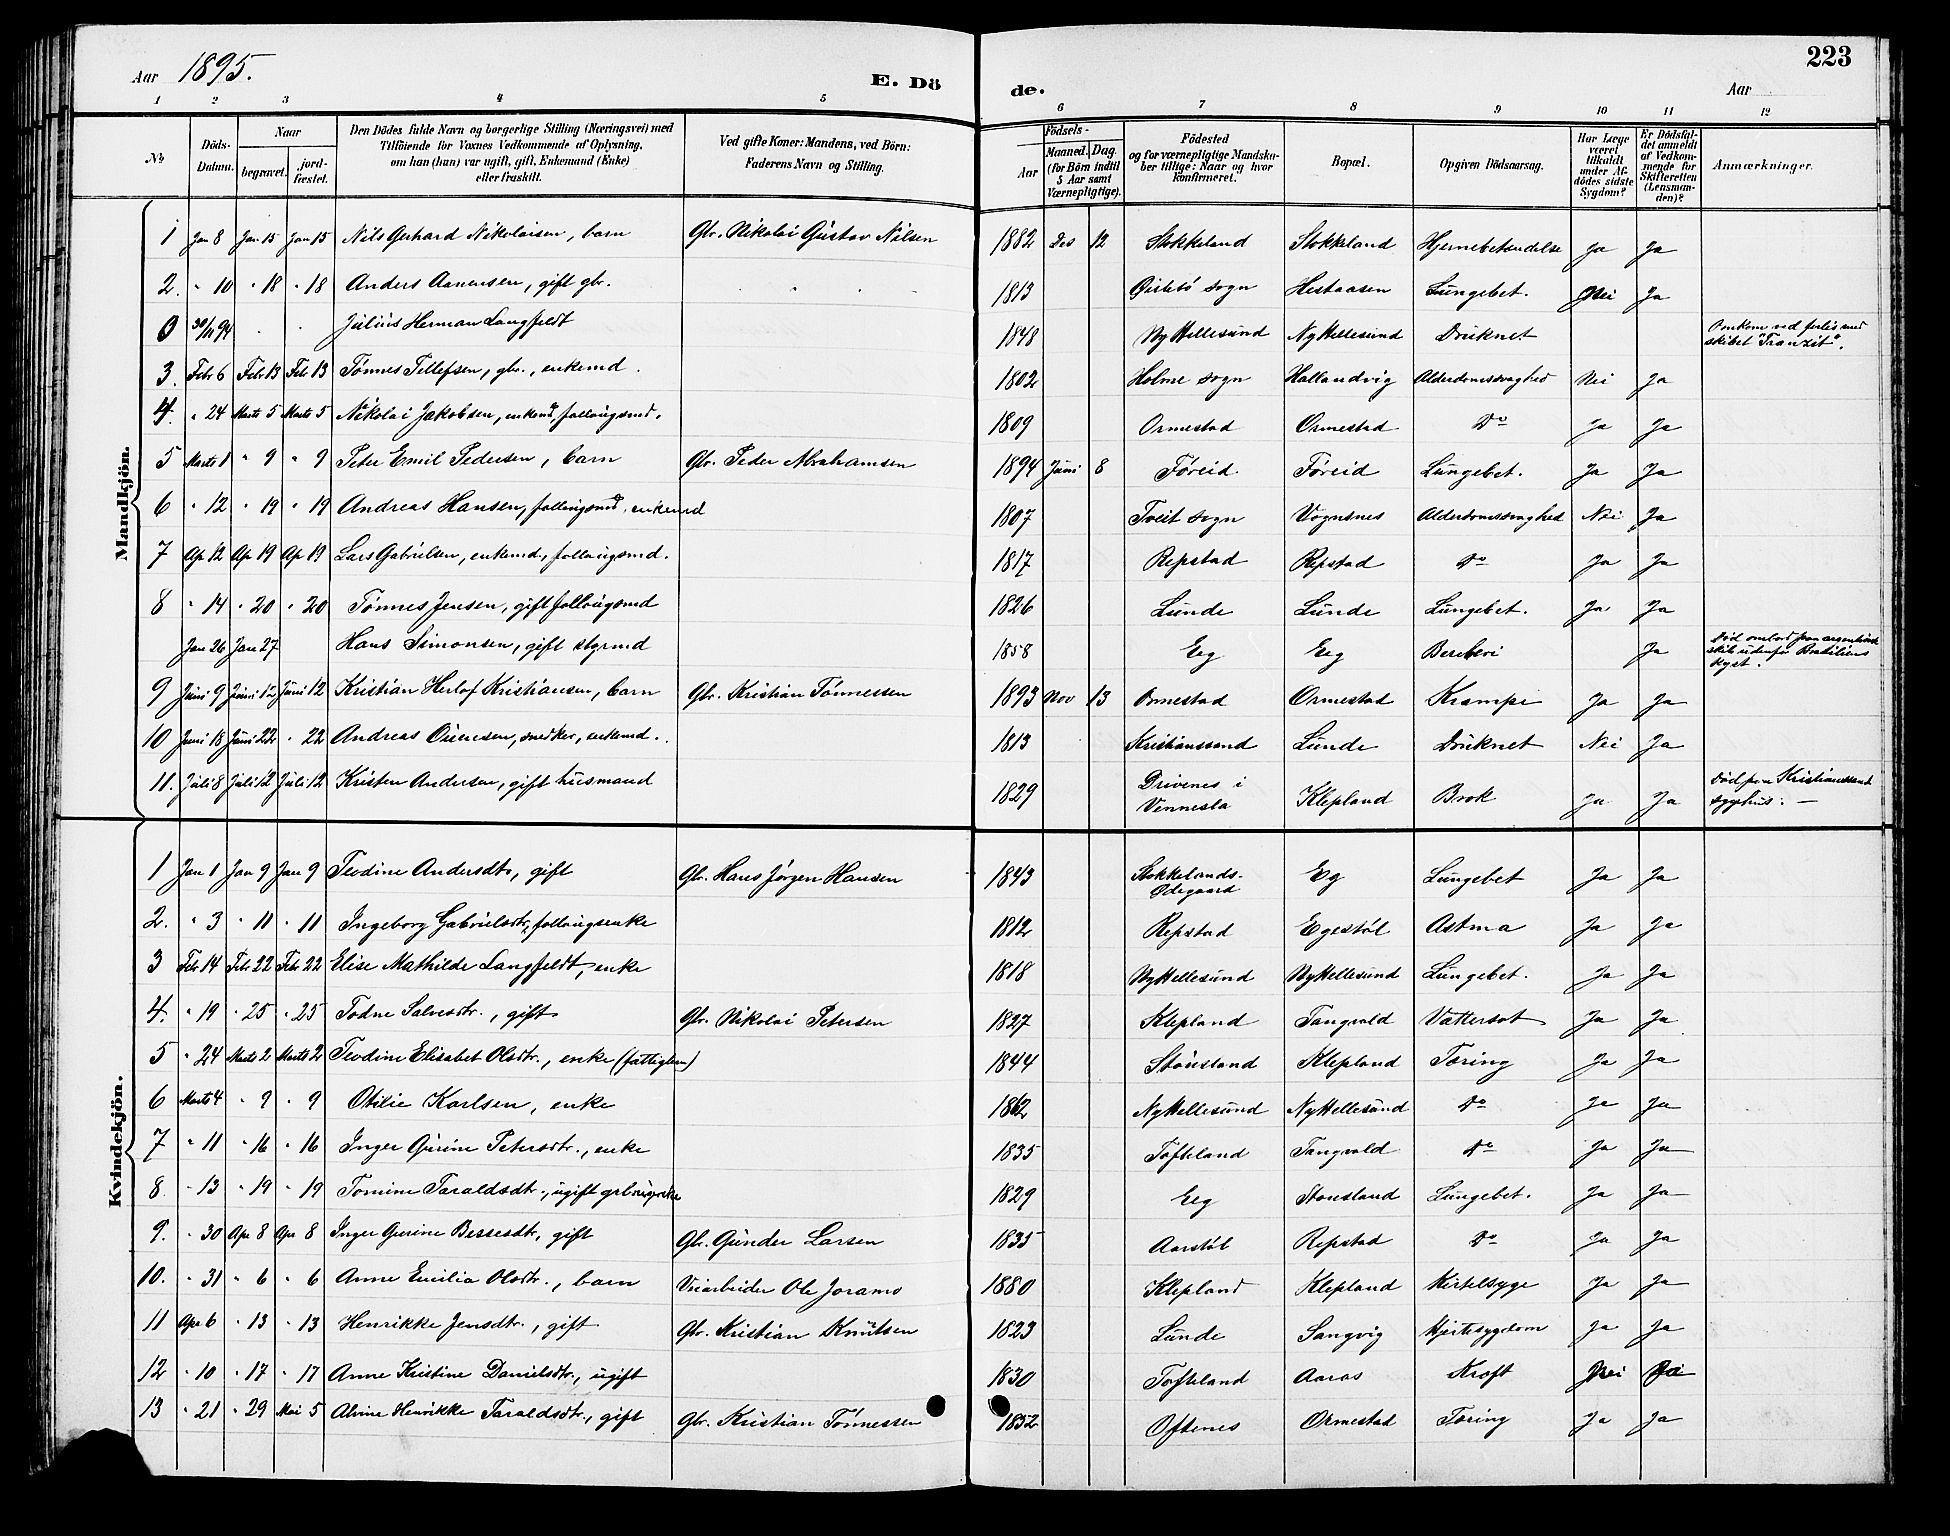 Aar 1895. E. Dö de. Aar 223
1 2 3 4 5 6 7 8 9 10 11 12
№ Döds-Datum. Naar begravet. jord-fæstet. Den Dödes fulde Navn og borgerlige Stilling (Næringsvei) med Tilföiende for Voxnes Vedkommende af Oplysning, om han (hun) var ugift, gift, Enkemand (Enke) eller fraskilt. Ved gifte Koner: Mandens, ved Börn: Faderens Navn og Stilling. Födsels- Aar Maaned. Dag. (for Börn indtil 5 Aar samt Værnepligtige). Födested og for værnepligtige Mandskaber tillige: Naar og hvor konfirmeret. Bopæl. Opgiven Dödsaarsag. Har Læge været tilkaldt under Afdödes sidste Sygdom? Er Dödsfaldet anmeldt af Vedkommende for Skifteretten (Lensmanden)? Anmærkninger.
Mandkjön.
1 Jan 8 Jan 15 Jan 15 Nils Gerhard Nikolaisen, barn Gbr. Nikolai Gustav Nilsen 1882 Des 12 Stokkeland Stokkeland Hjernebetændelse Ja Ja
2. " 10 " 18 " 18 Anders Aanensen, gift gbr. 1813 Øislebö sogn Hestaasen Lungebet. Nei Ja
0 30/11 94 Julius Herman Langfeldt 1848 Ny Hellesund Ny Hellesund Druknet Omkom ved forlis med skibet "Tranzit".
3. Febr 6 Febr 13 Febr 13 Tønnes Tellefsen, gbr., enkemd. 1802 Holme sogn Hallandvig Alderdomssvaghed Nei Ja
4. " 24 Marts 5 Marts 5 Nikolai Jakobsen, enkemd, follaugsmd. 1809 Ormestad Ormestad Do Ja Ja
5 Marts 1 " 9 " 9 Peter Emil Pedersen, barn Gbr. Peder Abrahamsen 1894 Juni 8 Føreid Føreid Lungebet. Ja Ja
6 " 12 " 19 " 19 Andreas Hansen, follaugsmd, enkemd 1807 Tveit sogn Vognsnes Alderdomssvaghed Nei Ja
7 Ap 12 Ap 19 Ap 19 Lars Gabrielsen, enkemd., follaugsmd. 1817 Repstad Repstad Do Ja Ja
8 " 14 " 20 " 20 Tønnes Jensen, gift follaugsmd 1826 Lunde Lunde Lungebet. Ja Ja
Jan 26 Jan 27 Hans Simonsen, gift styrmd 1858 Eeg Eeg Beriberi Ja Død ombord paa argentinsk skib udenfor Brasiliens kyst.
9 Juni 9 Juni 12 Juni 12 Kristian Herlof Kristiansen, barn Gbr. Kristian Tønnessen 1893 Nov 13 Ormestad Ormestad Krampe Ja Ja
10 Juni 18 Juni 22 " 22 Andreas Ouensen, snedker, enkemd. 1813 Kristianssand Lunde Druknet Nei Ja
11. Juli 8 Juli 12 Juli 12 Kristen Andersen, gift husmand 1829 Drivenes i Vennesla Klepland Brok Ja Ja Død paa Kristianssands sygehus. —
Kvindekjön.
1 Jan 1 Jan 9 Jan 9 Teodine Andersdtr, gift Gbr. Hans Jørgen Hansen 1843 Stokkelands-Ødegaard Eg Lungebet Ja Ja
2. " 3 " 11 " 11 Ingeborg Gabrielsdtr, follaugsenke 1812 Repstad Egestøl Astma Ja Ja
3 Febr 14 Febr 22 Febr 22 Elise Mathilde Langfeldt, enke 1818 Ny Hellesund Ny Hellesund Lungebet. Ja Ja
4. " 19 " 25 " 25 Todne Salvesdtr., gift Gbr. Nikolai Petersen 1827 Klepland Tangvald Vattersot Ja Ja
5 " 24 Marts 2 Marts 2 Teodine Elisabet Olsdtr., enke (fattiglem) 1844 Stønsland Klepland Tæring Ja Ja
6 Marts 4 " 9 " 9 Otilie Karlsen, enke 1862 Ny Hellesund Ny Hellesund Do Ja Ja
7 " 11 " 16 " 16 Inger Gurine Petersdtr., enke 1835 Tofteland Tangvald Do Ja Ja
8. " 13 " 19 " 19 Tomine Taraldsdtr., ugift 1829 Eeg Stonsland Lungebet. Ja Ja
9. " 30 Apr 8 Apr 8 Inger Gurine Bessesdtr, gift Gbr. Gunder Larsen 1835 Aarstøl Repstad Do Ja Ja
10. " 31 " 6 " 6 Anne Emilia Olsdtr., barn Veiarbeider Ole Joramo 1880 Klepland Klepland Kirtelsyge Ja Ja
11 Apr 6 " 13 " 13 Henrikke Jensdtr., gift Gbr. Kristian Knutsen 1823 Lunde Langvig Hjertesygdom Ja Ja
12 " 10 " 17 " 17 Anne Kristine Danielsdtr., ugift 1830 Tofteland Aaros Kræft Nei Ja
13 " 21 " 29 Mai 5 Alvine Henrikke Taraldsdtr., gift Gbr. Kristian Tønnessen 1852 Oftenes Ormestad Tæring Ja Ja